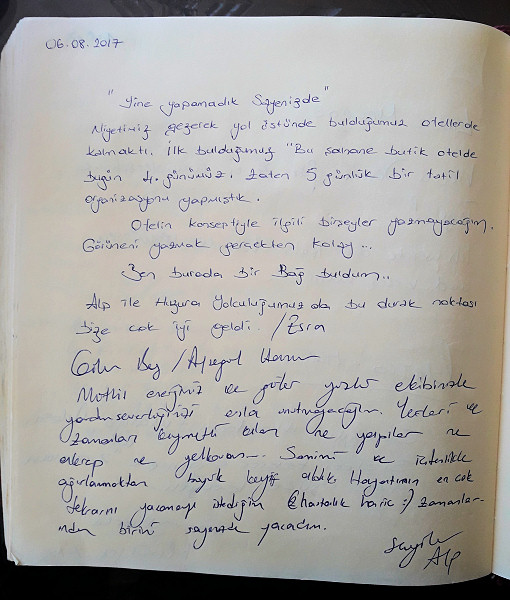 06.08.2017
"Yine yapamadık Sayenizde"
Niyetimiz gezerek yol üstünde bulduğumuz otellerde
kalmaktı. İlk bulduğumuz "Bu şahane butik otelde
bugün 4. günümüz. Zaten 5 günlük bir tatil
organizasyonu yapmıştık.
Otelin konseptiyle ilgili birşeyler yazmayacağım.
Görüneni yazmak gerçekten kolay...
Ben burada bir Bağ buldum..
Alp ile Huzura Yolculuğumuzda bu durak noktası
bize çok iyi geldi. /Esra
Bey / Ayşegül Hanım
enerjiniz ve güler yüzlü ekibinizle
yardımseverliğinizi asla unutmayacağım. Yerleri ve
zamanları kıymetli kılan ne yarışılar ne
akrep ne yelkovan... Samimi ve içtenlikle
ağırlanmaktan büyük keyif aldık. Hayatımın en çok
tekrarını yaşamayı istediğim (hastalık hariç :) zamanlar-
ından birini sayenizde yaşadım.
Sevgiler
Alp